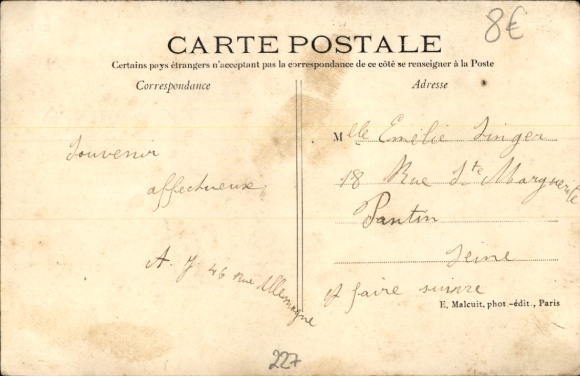 8€
CARTE POSTALE
Certains pays étrangers n'acceptant pas la correspondance de ce côté se renseigner à la Poste
Correspondance
Souvenir
affectueux
A. J. 46 Rue Allemagne
Adresse
Mlle Emélie Singer
18 Rue Ste Marguerite
Pantin
Seine
faire suivre
E. Malcuit, phot-édit., Paris
227